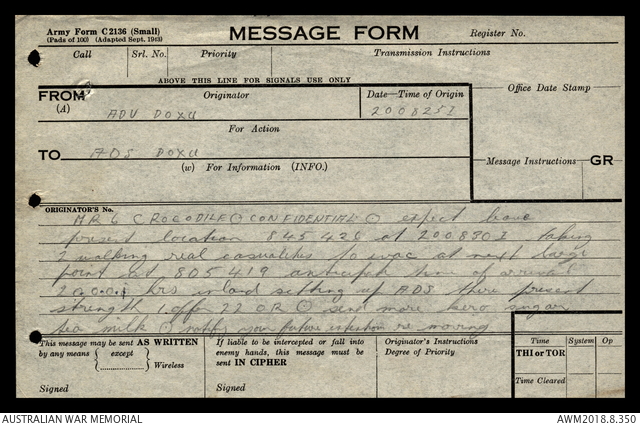 Army Form C2136 (Small)
(Pads of 100) (Adapted Sept. 1943)
MESSAGE FORM
Register No.
Call
Srl. No.
Priority
Transmission Instructions
ABOVE THIS LINE FOR SIGNALS USE ONLY
FROM
(A)
Originator
Date—Time of Origin
Office Date Stamp
ADV DOXU
200825I
For Action
TO
ADS DOXU
(w) For Information (INFO.)
Message Instructions
GR
ORIGINATOR'S No.
MR 6 CROCODILE ⊙ CONFIDENTIAL ⊙ expect leave
present location 845426 at 200830I taking
2 walking real casualties to evac at next large
point at 805419 anticipate time of arrival
hrs setting up ADS there present
strength 1 offr 22 OR ⊙ send more kero sugar
tea milk ⊙ notify your future intention re moving
This message may be sent AS WRITTEN
by any means
(except
)
Wireless
Signed
If liable to be intercepted or fall into
enemy hands, this message must be
sent IN CIPHER
Signed
Originator's Instructions
Degree of Priority
Time
System
Op
THI or TOR
Time Cleared
AUSTRALIAN WAR MEMORIAL
AWM2018.8.350